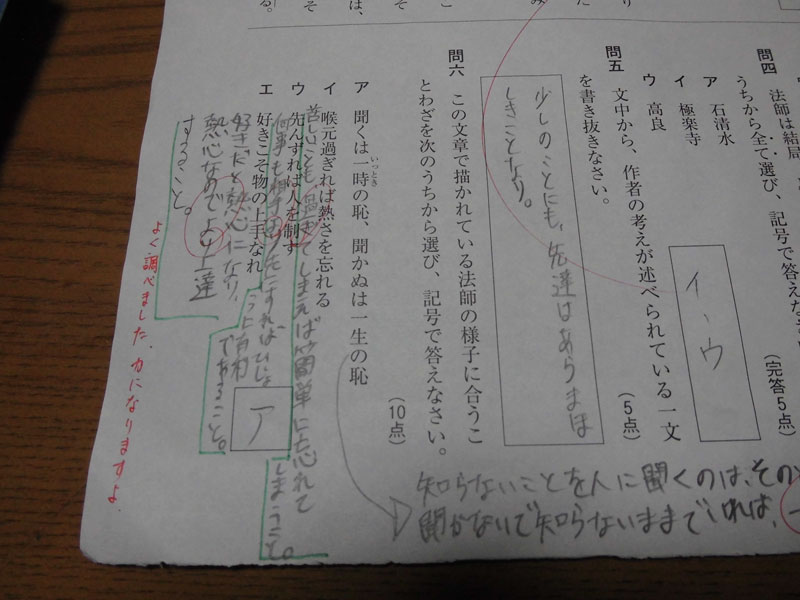 問四
法師は結局
うちから全て選び、記号で答えな
(完答5点)
ア 石清水
イ 極楽寺
ウ 高良
イ、ウ
問五 文中から、作者の考えが述べられている一文
を書き抜きなさい。
(5点)
少しのことにも、先達はあらまほ
しきことなり。
問六 この文章で描かれている法師の様子に合うこ
とわざを次のうちから選び、記号で答えなさい。
(10点)
ア 聞くは一時の恥、聞かぬは一生の恥
いっとき
イ 喉元過ぎれば熱さを忘れる
ウ 先んずれば人を制す
エ 好きこそ物の上手なれ
ア
知らないことを人に聞くのは、その
聞かないで知らないままでいれば、一
苦しいことも過ぎてしまえば簡単に忘れて
しまうこと。
何事も相手より先にすれば
であること。
好きだと熱心になり、
熱心なのでより上達
すること。
よく調べました。力になりますよ。